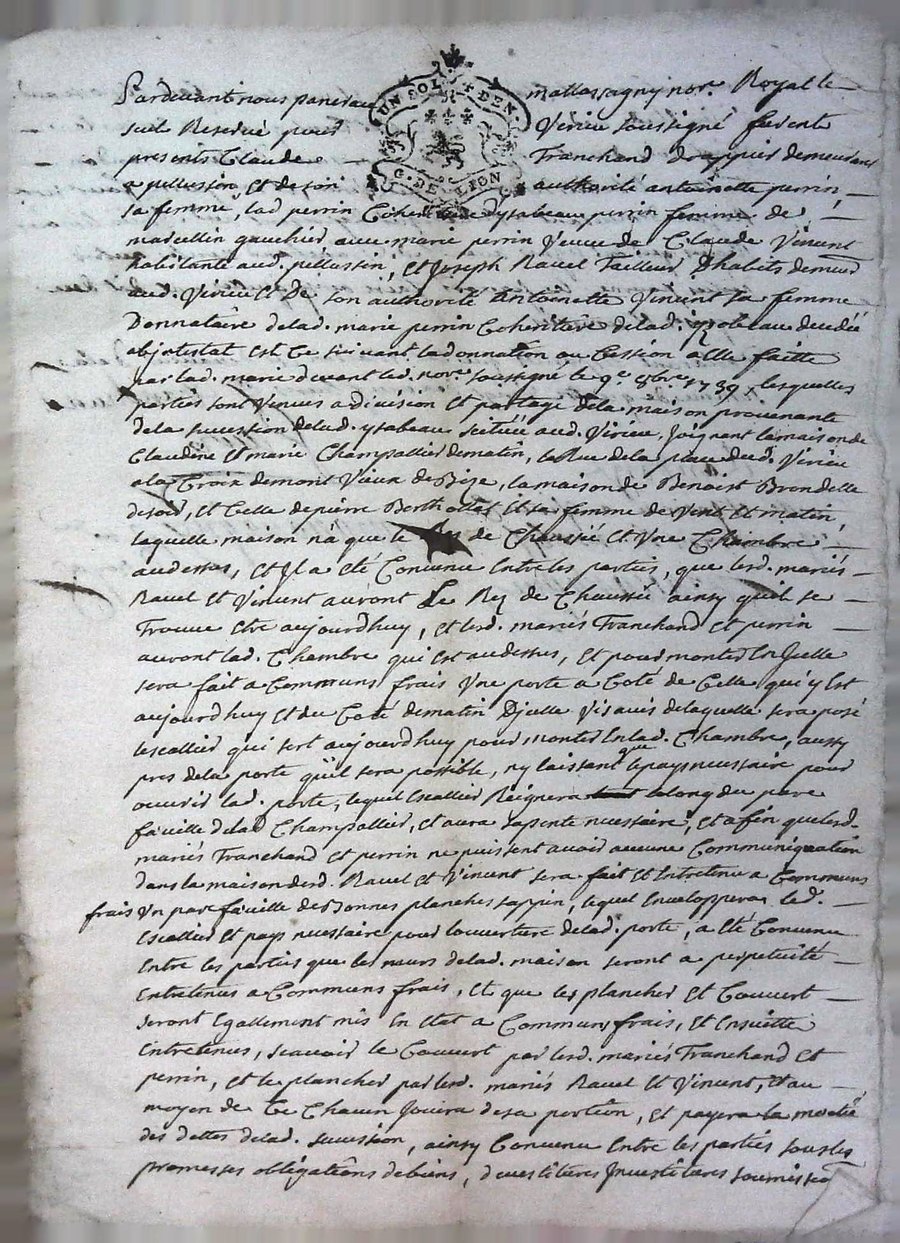 Pardevant nous
UN SOL 4 DEN
G. DE LION
mallassagny nore. Royal le
seul Reservé pour Virieu soussigné furent
presents Claude Tranchand drappier demeurant
a pellussin, et de son authorité antoinette perrin
sa femme, lad perrin Coheritiere d'ysabeau perrin femme de
marcellin gauchier avec marie perrin veuve de Claude Vincent
habitante aud. pellussin, et Joseph Ravel Tailleur d'habits demeur
aud. Virieu et De son authorité antoinette Vincent sa femme
Donnataire delad. marie perrin Coheritiere delad. decedée
abjntestat et Ce suivant ladonnation ou Cession a Elle faitte
par lad. marie devant led. nore. soussigné le 9e. 8bre 1739, lesquelles
parties sont venues a division et partage dela maison provenante
dela succession delad. ysabeau scituée aud. Virieu, Joignant lamaison de
Claudine et marie Champallier dematin, la Rue dela place dud. Virieu
a la Croix demont Vieux de Bize, lamaison de Benoist Brondelle
desoir, et Celle depierre Berthollet et sa femme de vent et matin,
laquelle maison n'a que le de Chaussée et Une Chambre
audessus, et Jl a eté Convenu Entre les parties, que lesd. mariés
Ravel et Vincent auront Le Rez de Chaussée ainsy qu'il se
Trouve etre aujourdhuy, et lesd. mariés Tranchand et perrin
auront lad. Chambre qui est audessus, et pour monter En Jcelle
sera fait a Communs frais Une porte a Coté de Celle qui y Est
aujourdhuy et du Coté dematin D'jcelle Visavis delaquelle sera posé
lescallier qui sert aujourdhuy pour monter En lad. Chambre, aussy
pres dela porte qu'il sera possible, n'y laissant que lepays necessaire pour
ouvrir lad. porte, lequel Escallier Reignera lelong du pare
fauille delad Champallier, et aura sapente necessaire, et afin que lesd.
mariés Tranchand et perrin ne puissent avoir aucune Communiquation
dans la maison desd. Ravel et Vincent sera fait et Entretenu a Communs
frais Un parefauille de Bonnes planches sappin, lequel Enveloppera led.
Escallier et pays necessaire pour louverture delad. porte, a eté Convenu
Entre les parties que les murs delad. maison seront a perpetuité
Entretenus a Communs frais, et que les plancher et Couvert
seront Egallement mis En Etat a Communs frais, et Ensuitte
Entretenus, scavoir le Couvert par lesd. mariés Tranchand et
perrin, et le plancher par lesd. mariés Ravel et Vincent, et au
moyen de Ce Chacun Jouira desa portion, et payera la moitié
des dettes delad. succession, ainsy Convenu Entre les parties sous les
promesses obligations debiens, devestitures Jnvestitures soumissio